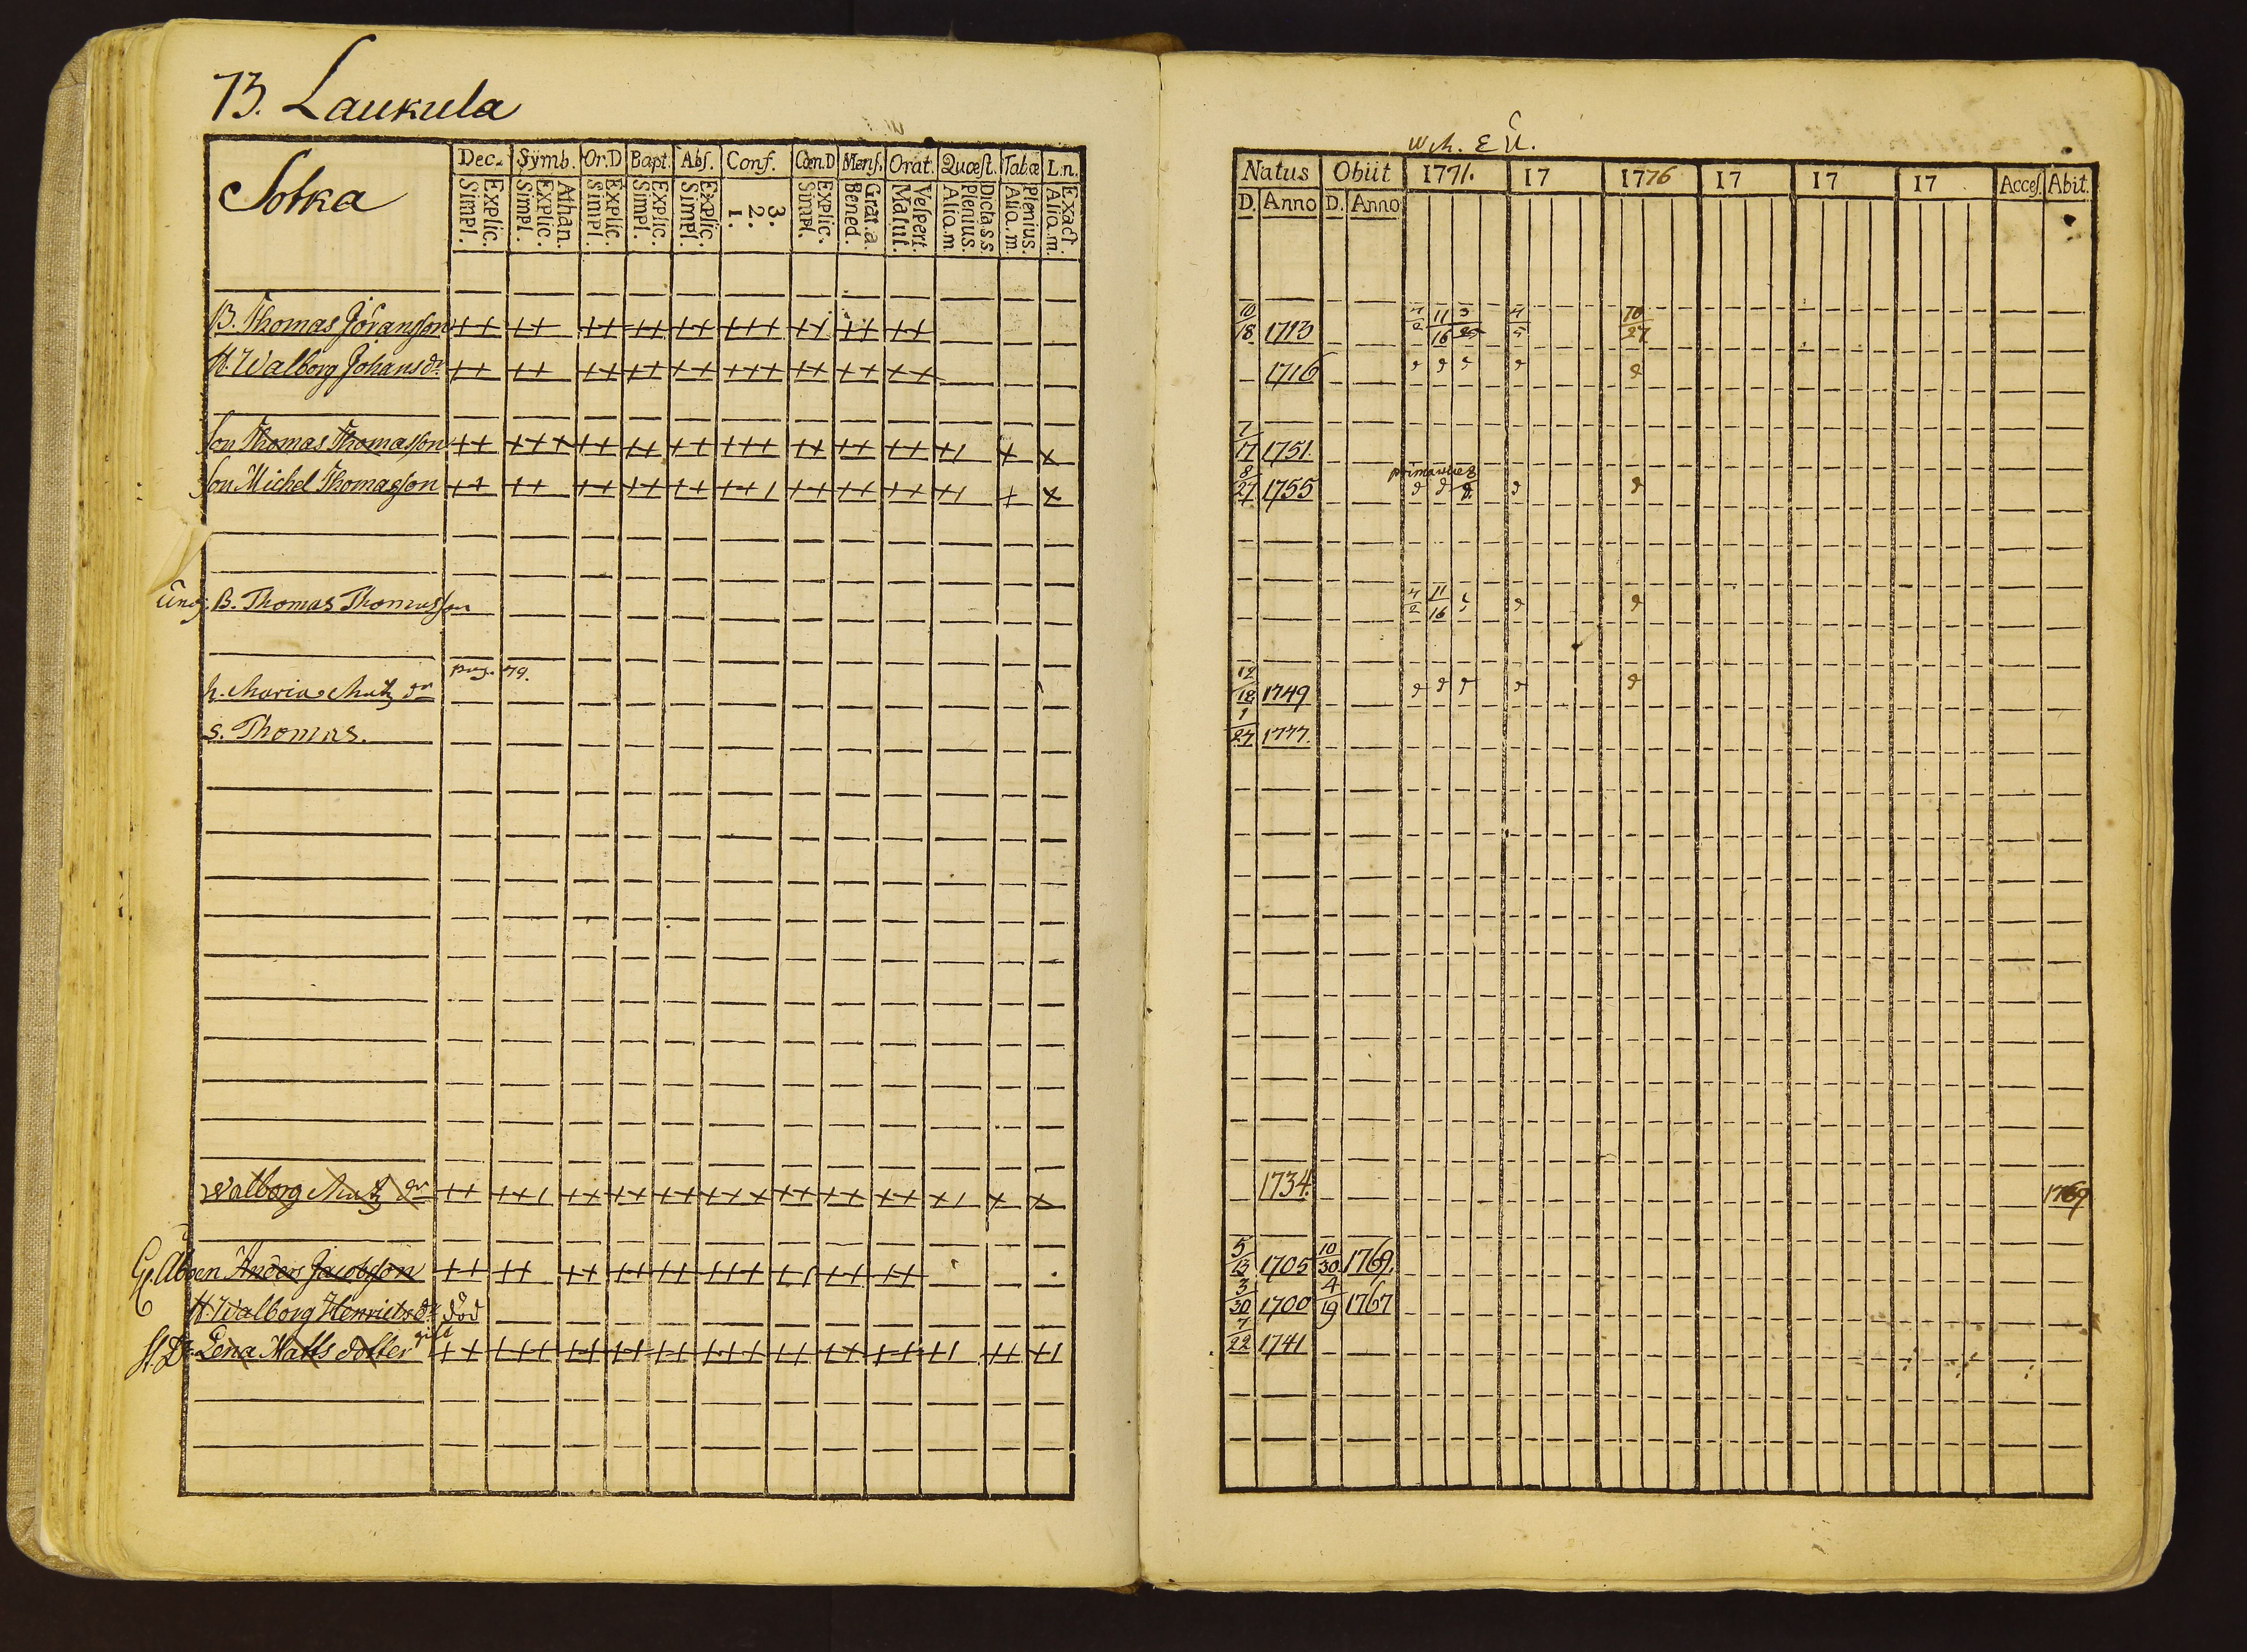 73. Laukula
Sotka
Dec. Symb. Or.D Bapt. Abs. Conf. Cœn.D Mens. Orat. Quæst. Tabæ L.n.
Explic. Simpl. Athan. Explic. Simpl. Explic. Simpl. Explic. Simpl. Explic. Simpl. 3. 2. 1. Explic. Simpl. Grat.a. Bened. Vespert. Matut. Dicta s.s. Plenius. Aliq.m. Plenius. Aliq.m. Exact. Aliq.m.
B. Thomas Jöransson ++ ++ ++ ++ ++ +++ ++ ++ ++
H. Walborg Johansdr ++ ++ ++ ++ ++ +++ ++ ++ ++
Son Thomas Thomasson ++ +++ ++ ++ ++ +++ ++ ++ ++ +1 + x
Son Michel Thomasson ++ ++ ++ ++ ++ ++1 ++ ++ ++ +1 + x
Ung. B. Thomas Thomasson
pag. 79.
h. Maria Matz dr
s. Thomas.
Walborg Matz dr ++ ++1 ++ ++ ++ +++ ++ ++ ++ +1 + x
Anders Jacobsson ++ ++ ++ ++ ++ +++ ++ ++ ++
H. Walborg Henrichsdr död
gift
Lena Matts dotter
W.h. E
Natus Obiit 1771. 17 1776 17 17 17 Acces. Abit.
D. Anno D. Anno
10/18 1713 4/2 11/16 3/25 4/5 10/27
1716 d d d d d
7/17 1751.
8/27 1755 d d d d d
4/2 11/16 d d
12/18 1749 d d d d d
1/27 1777.
1734. 1769
5/13 1705 10/30 1769.
3/30 1700 4/19 1767
7/22 1741